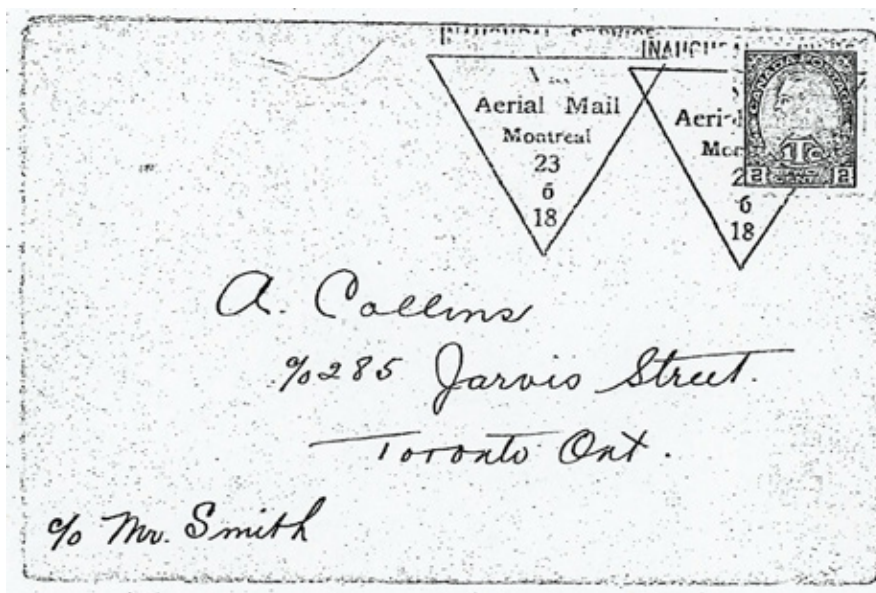 INAUGURAL SERVICE
Aerial Mail
Montreal
23
6
18
6
18
CANADA POSTAGE
1Tc
2 CENTS 2
A. Collins
c/o 285 Jarvis Street.
Toronto Ont.
c/o Mr. Smith